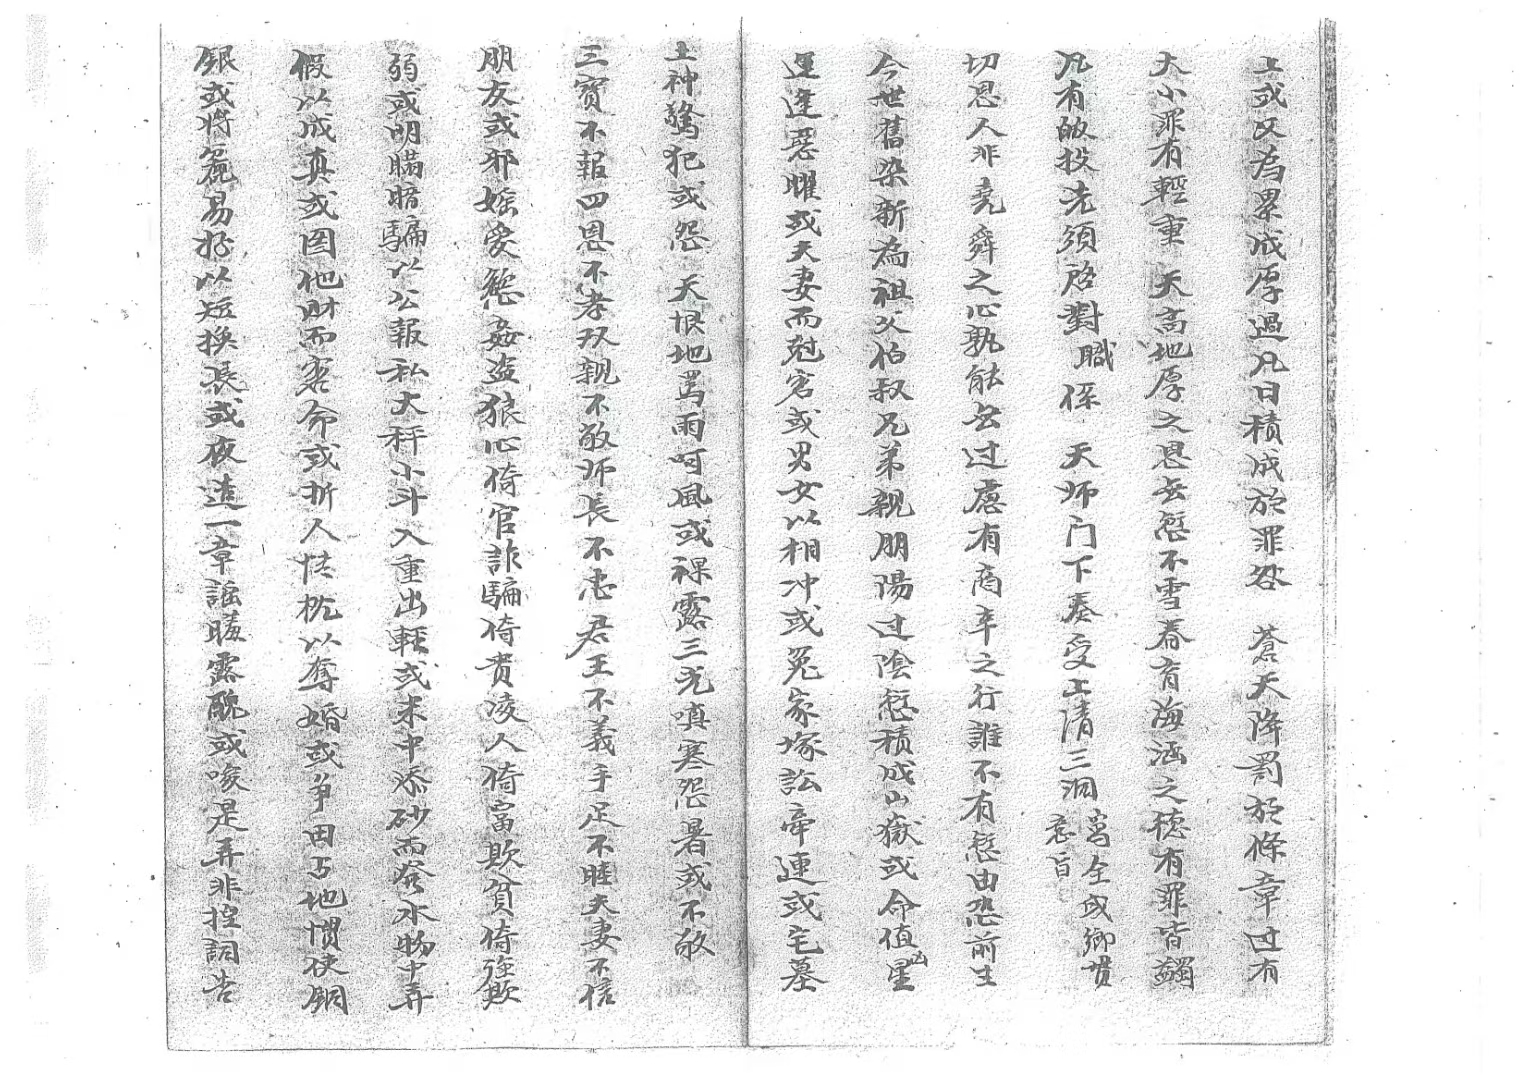 上或又為累成厚過凡日積成於罪咎 蒼天降罰於條章过有
大小罪有輕重 天高地厚之恩无愆不雪春育海涵之德有罪皆蠲
凡有皈投先須啓對 職係 天师门下奏受上清三洞
意旨
切思人非堯舜之心孰能无过慮有商辛之行誰不有愆由恐前生
今世舊染新為祖父伯叔兄弟親朋陽过陰愆積成山嶽或命值凶星
運逢惡曜或夫妻而尅害或男女以相冲或冤家塚訟牽連或宅墓
土神驚犯或怨 天恨地罵雨呵風或裸露三光嗔寒怨暑或不敬
三寶不報四恩不孝双親不敬师長不忠君王不義手足不睦夫妻不信
朋友或邪婬愛慾姦盜狼心倚官詐騙倚贵凌人倚富欺貧倚強欺
弱或明瞞暗騙以公報私大秤小斗入重出輕或米中添砂而發水物中弄
假以成真或图他财而害命或折人情 以奪婚或爭田占地慣使銅
銀或將麄易 以短換長或夜造一章謠 露醜或唆是弄非控詞告